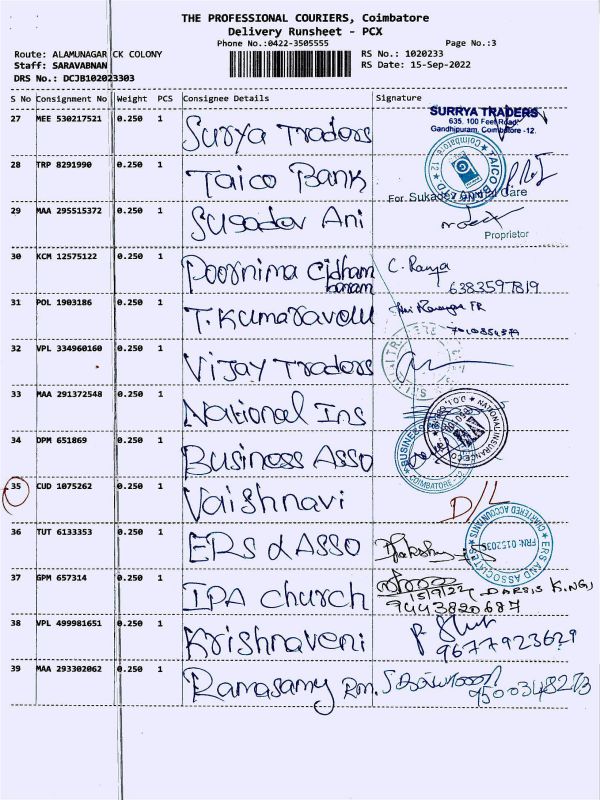 THE PROFESSIONAL COURIERS, Coimbatore
Delivery Runsheet - PCX
Phone No.:0422-3505555
Page No.:3
Route: ALAMUNAGAR CK COLONY
RS No.: 1020233
Staff: SARAVABNAN
RS Date: 15-Sep-2022
DRS No.: DCJB102023303
S No Consignment No Weight PCS Consignee Details Signature
27 MEE 530217521 0.250 1 Surya Traders
SURRYA TRADERS
635, 100 Feet Road
Gandhipuram, Coimbatore -12.
28 TRP 8291990 0.250 1 Taico Bank
TAICO BANK LTD
For Sukadev Care
29 MAA 295515372 0.250 1 Sugadav Ani
Proprietor
30 KCM 12575122 0.250 1 Poornima Cidham
baram
C. Ramya
6383597819
31 POL 1903186 0.250 1 T. Kumaravelu
32 VPL 334960160 0.250 1 Vijay Traders
33 MAA 291372548 0.250 1 National Ins
NATIONAL INSURANCE
34 DPM 651869 0.250 1 Business Asso
BUSINESS
COIMBATORE
35 CUD 1075262 0.250 1 Vaishnavi D/L
36 TUT 6133353 0.250 1 ERS & ASSO
ERS AND ASSOCIATES
CHARTERED ACCOUNTANTS
37 GPM 657314 0.250 1 IPA Church
15/9/22
9443820687
38 VPL 499981651 0.250 1 Krishnaveni
9677923629
39 MAA 293302062 0.250 1 Ramasamy Rm.
9500348273